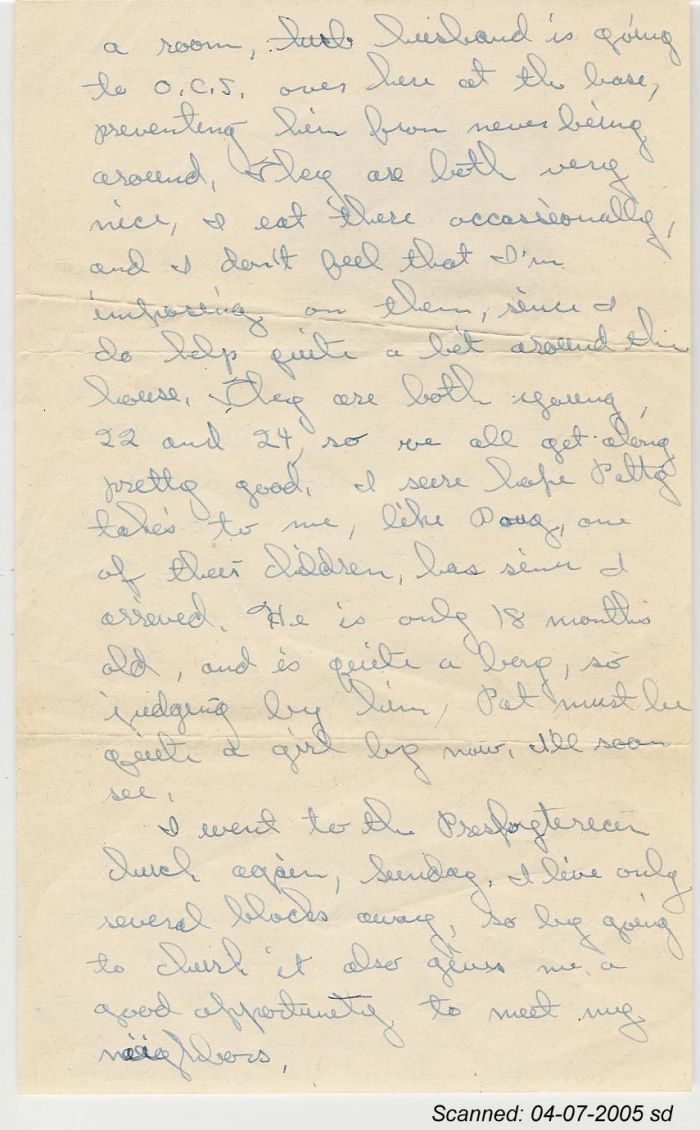 a room, husb husband is going
to O.C.S. over here at the base,
preventing him from never being
around. They are both very
nice, I eat there occassionally,
and I don't feel that I'm
imposing on them, since I
do help quite a bit around the
house. They are both young,
22 and 24, so we all get along
pretty good. I sure hope Patty
takes to me, like Doug, one
of their children, has since I
arrived. He is only 18 months
old, and is quite a boy, so
judging by him, Pat must be
quite a girl by now. I'll soon
see.
I went to the Presbyterean
church again, Sunday. I live only
several blocks away, so by going
to church it also gives me a
good opportunity to meet my
neighbors.
Scanned: 04-07-2005 sd